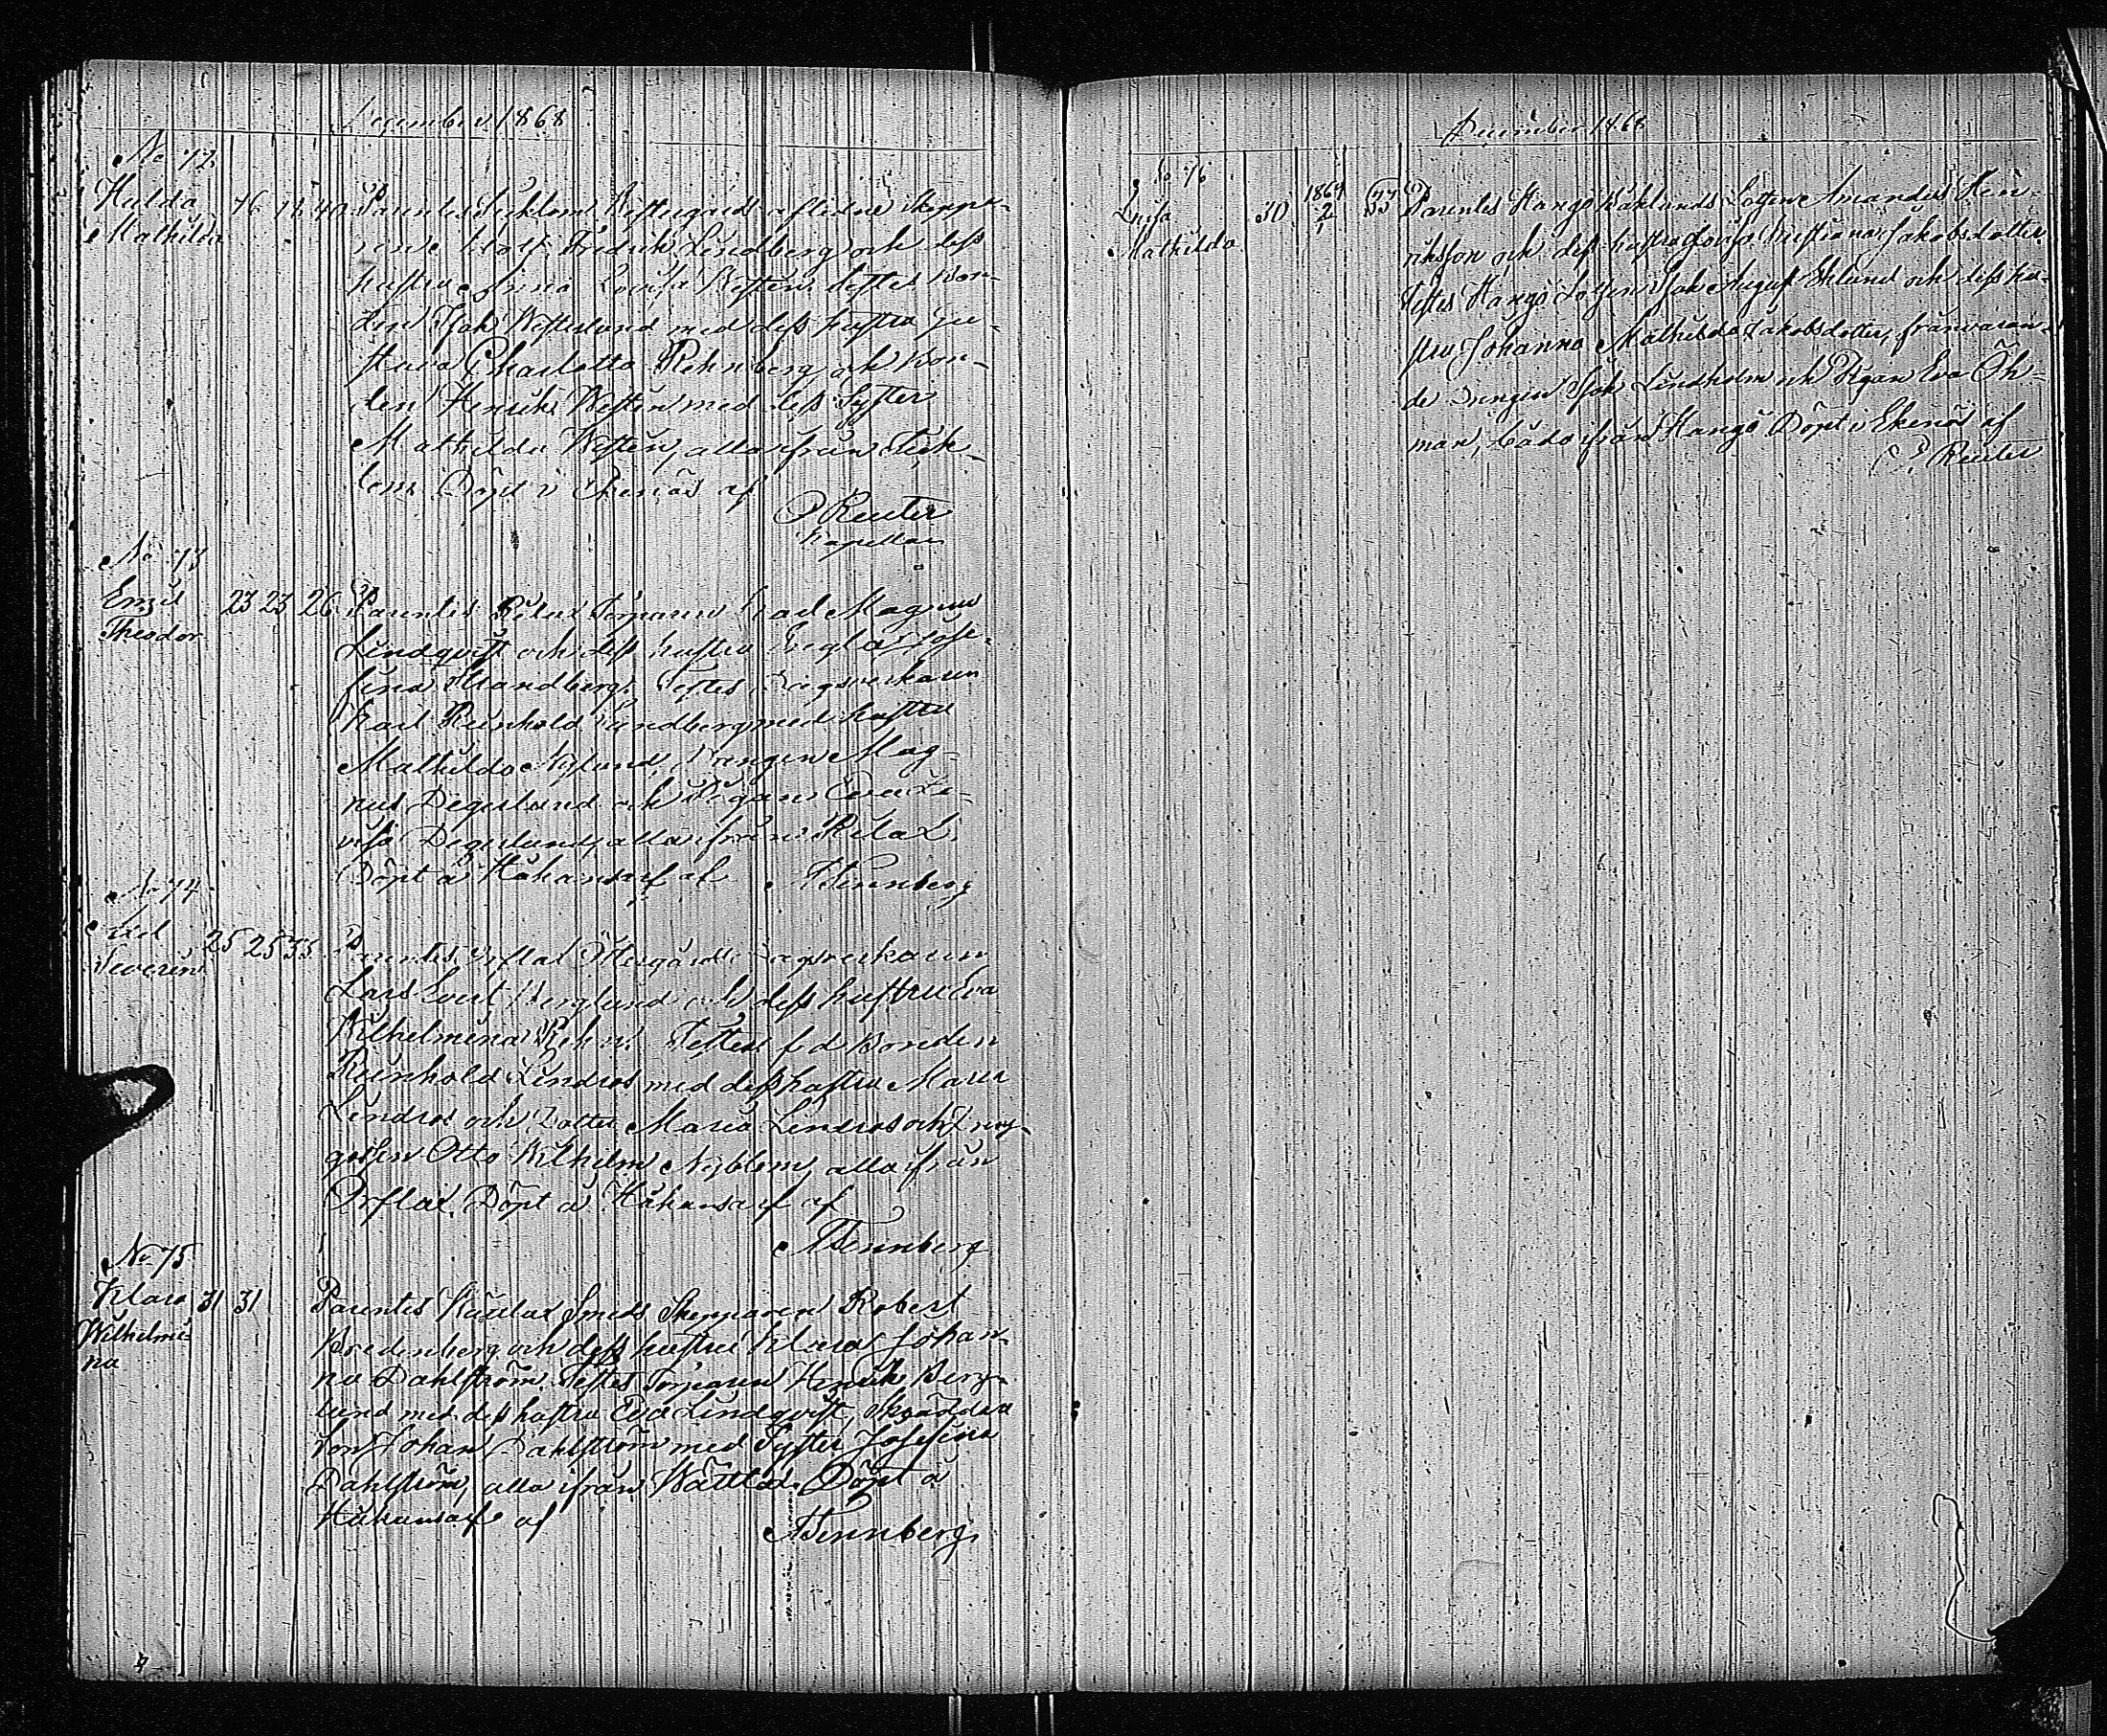 December 1868
No 72
Hulda
Mathilda
16 18 40 Parentes Westergård aflidne Skeppa-
rene Fredrik Lindberg och dess
hustru Anna Lovisa Westén testes Bon-
den Isak Westerlund med dess hustru Gu-
stava Charlotta Rehnberg och Bon-
den Henrik Westén med dess Syster
Mathilda Westén, alla ifrån
Döpt i Ekenäs af
Reuter
Kapellan
No 73
Emil
Theodor
23 23 26 Parentes Rilax Torparen Karl Magnus
Lindqvist och dess hustru Jose-
fina Strandberg. Testes
Karl Reinhold Sundberg med hustru
Mathilda Nylund, Drengen Mag-
nus Degerlund och Pigan Lo-
visa Degerlund, alla ifrån Rilax.
Döpt å Håkansarf af ATennberg
No 74
Axel
Severin
25 25 35 Parentes Orslax Östergårds
Lars Evert Berglund och dess hustru Eva
Wilhelmina Rehn. Testes f d Bonden
Reinhold Lindros med dess hustru Maria
Lindros och Dotter Maria Lindros och Yng-
Otto Wilhelm Nyblom, alla ifrån
Orslax. Döpt å Håkansarf af
ATennberg
No 75
Klara
Wilhelmi-
na
31 31 Parentes Smeds Skepparen Robert
Bredenberg och dess hustru Klara Johan-
na Dahlström. Testes Torparen Henrik Berg-
lund med dess hustru Eva Lindqvist, Skräddare
Son Johan Dahlström med Syster Josefina
Dahlström, alla ifrån Wättlax. Döpt å
Håkansarf af
ATennberg
December 1868
No 76
Lovisa
Mathilda
30 1869 2/1 33 Parentes Hangö Kåklunds Lotsen Amandus Hen-
riksson och dess hustru Lovisa Kristiana Jakobsdotter.
Testes Hangö Lotsen Isak August Eklund och dess hu-
stru Johanna Mathilda Jakobsdotter, frånvaran-
de Drengen Isak Lindholm och Pigan Eva Öh-
man, båda ifrån Hangö. Döpt i Ekenäs af
Reuter